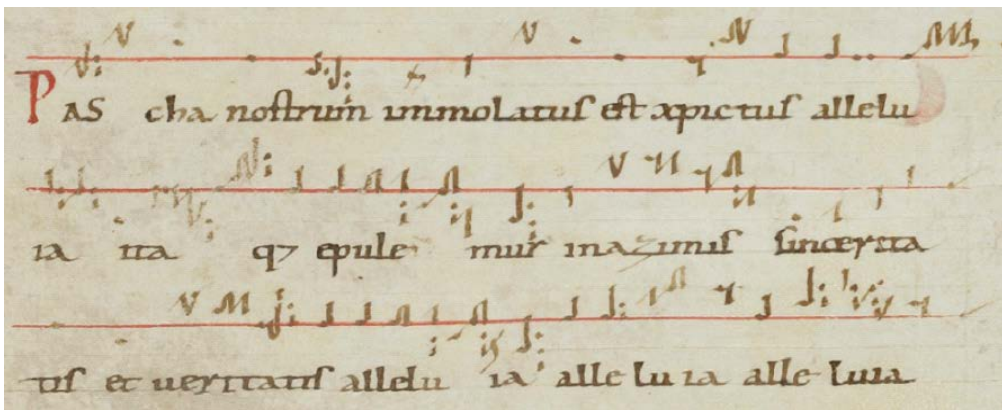 PAS cha nostrum immolatus est xpictus allelu
ia ita q7 epule mur inazimis sincerita
tis et veritatis allelu ia alle lu ia alle luia